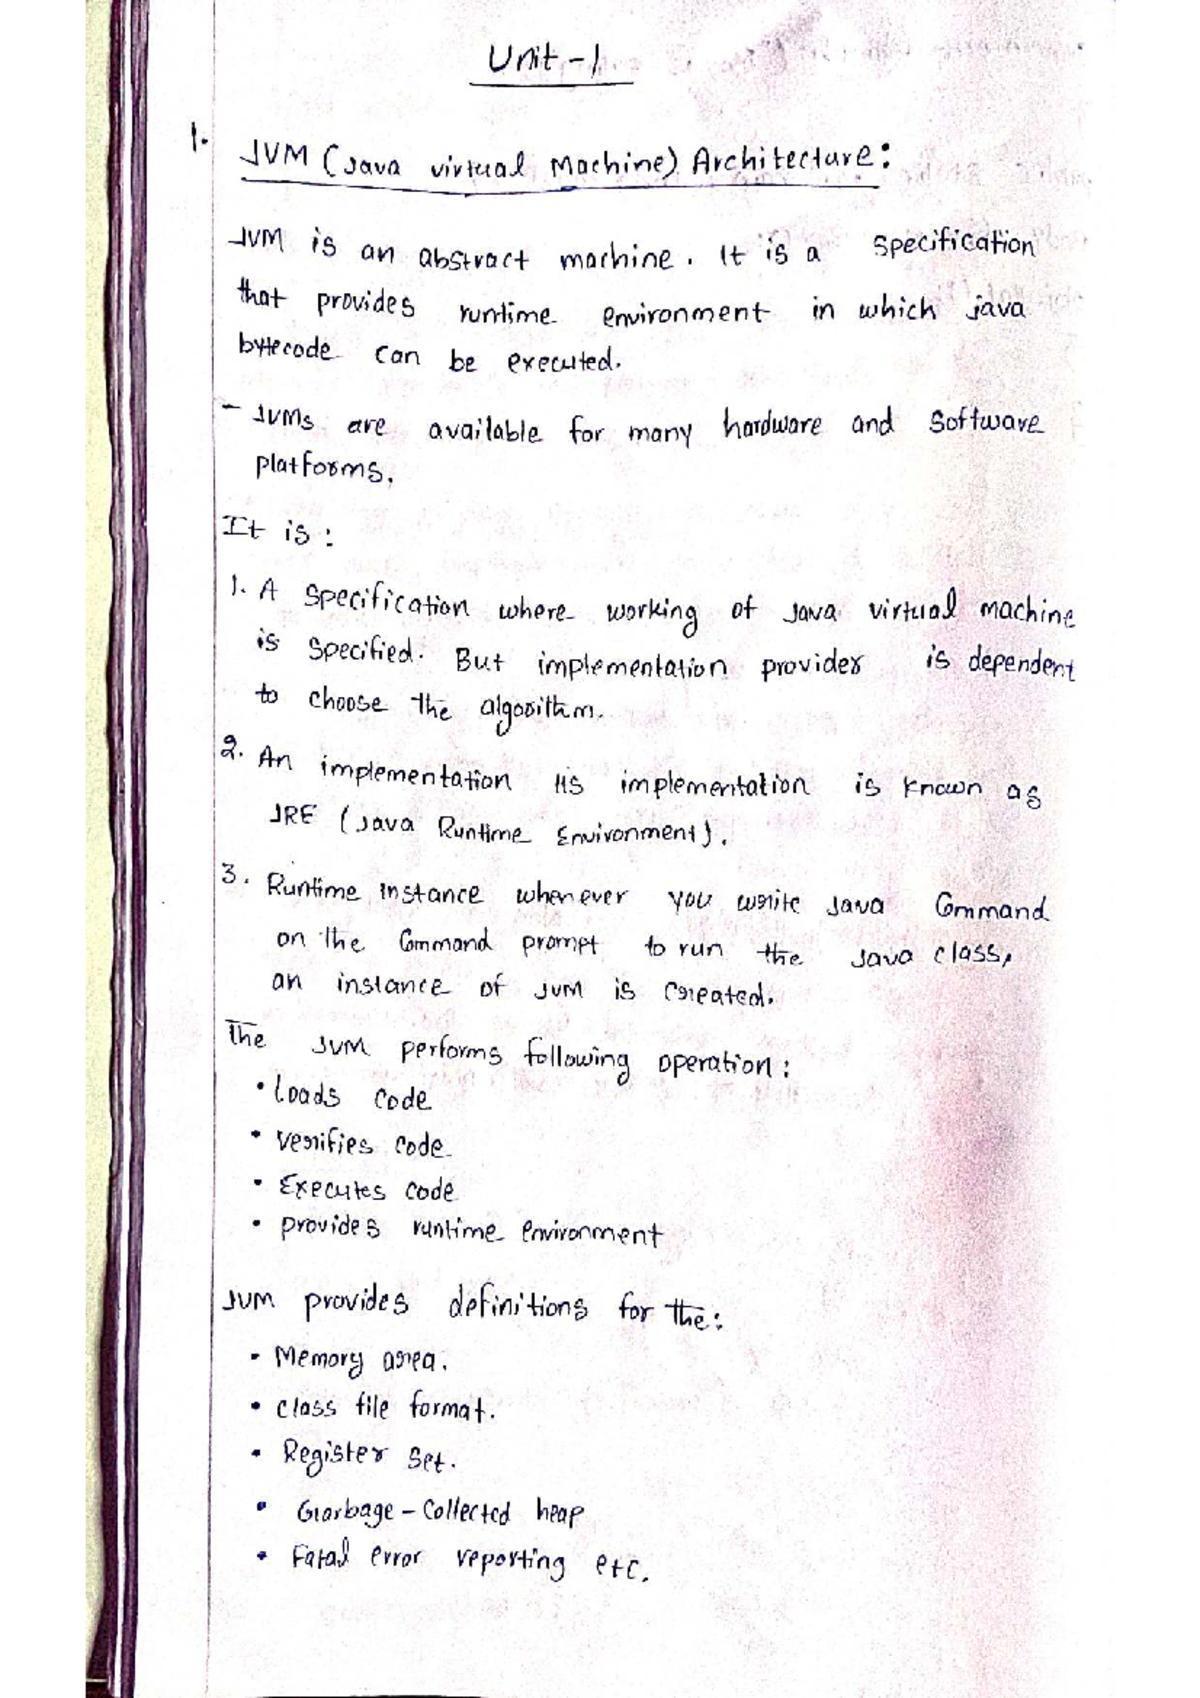 Unit - 1
1. JVM (Java virtual Machine) Architecture:
JVM is an abstract machine. It is a specification
that provides runtime environment in which java
bytecode can be executed.
- JVMs are available for many hardware and software
platforms.
It is :
1. A specification where working of Java virtual machine
is specified. But implementation provider is dependent
to choose the algorithm.
2. An implementation its implementation is known as
JRE (Java Runtime Environment).
3. Runtime instance whenever you write Java Command
on the Command prompt to run the Java class,
an instance of JVM is created.
The JVM performs following operation :
• Loads code
• verifies code
• Executes code
• provides runtime environment
JVM provides definitions for the :
• Memory area.
• class file format.
• Register set.
• Garbage - Collected heap
• Fatal error reporting etc.